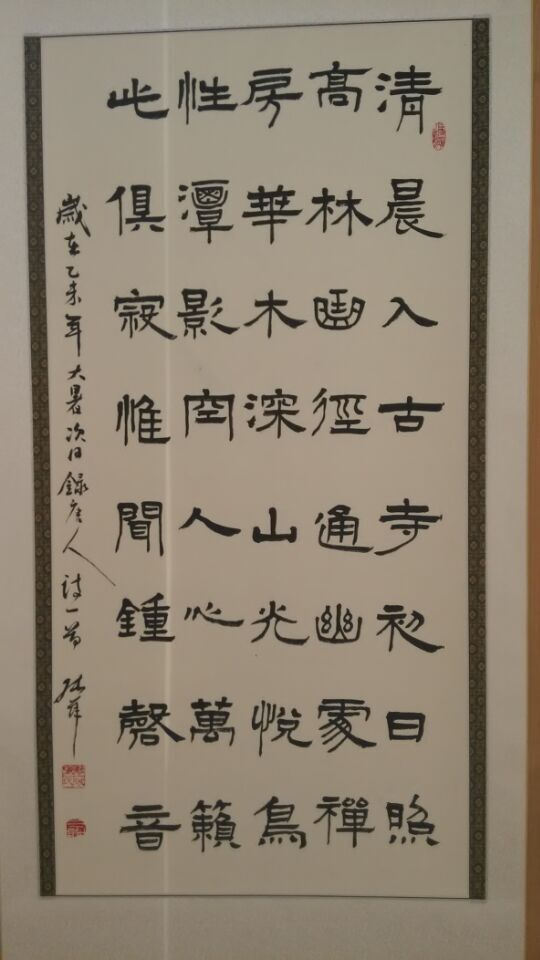 清晨入古寺初日照
髙林曲徑通幽處禪
房華木深山光悅鳥
性潭影空人心萬籟
此俱寂惟聞鍾磬音
歲在乙未年大暑次日錄唐人詩一首